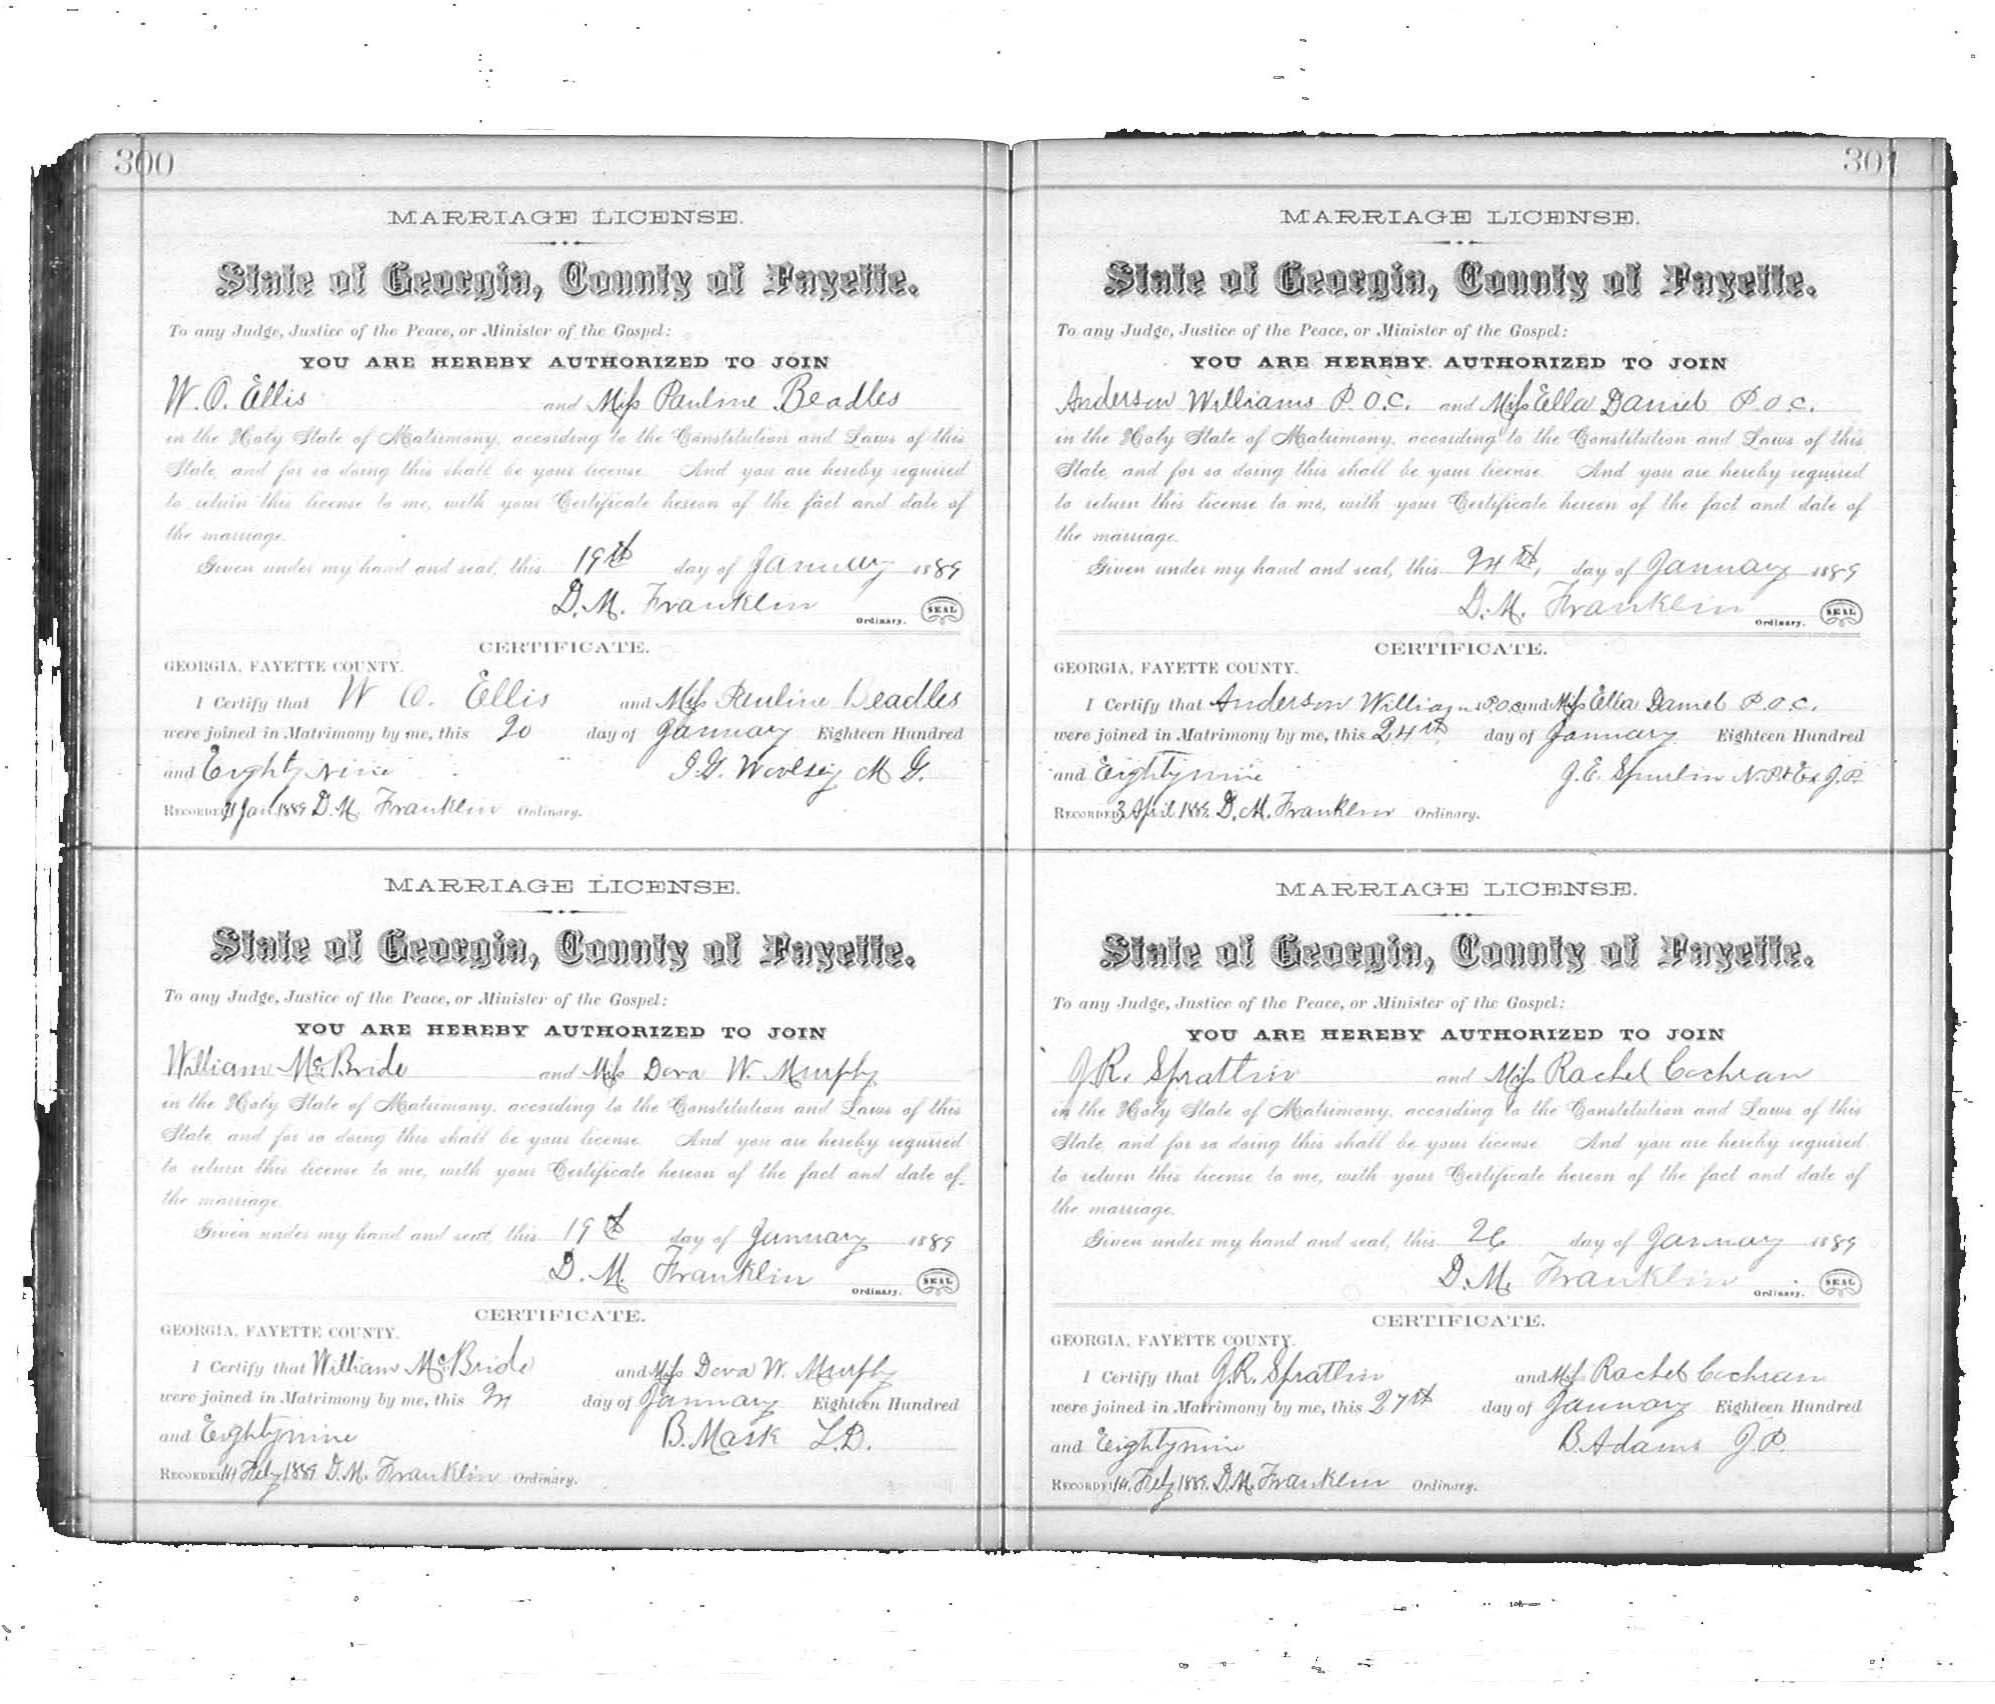 300
MARRIAGE LICENSE.
State of Georgia, County of Fayette.
To any Judge, Justice of the Peace, or Minister of the Gospel:
YOU ARE HEREBY AUTHORIZED TO JOIN
W. O. Ellis and Miss Pauline Beadles
in the Holy State of Matrimony, according to the Constitution and Laws of this
State, and for so doing this shall be your license. And you are hereby required
to return this license to me, with your Certificate hereon of the fact and date of
the marriage.
Given under my hand and seal, this 19th day of January 1889
D. M. Franklin
Ordinary. SEAL
CERTIFICATE.
GEORGIA, FAYETTE COUNTY.
I Certify that W O. Ellis and Miss Pauline Beadles
were joined in Matrimony by me, this 20 day of January Eighteen Hundred
and Eighty Nine J. G. Woolsey M G.
RECORDED Jan 1889 D. M. Franklin Ordinary.
MARRIAGE LICENSE.
State of Georgia, County of Fayette.
To any Judge, Justice of the Peace, or Minister of the Gospel:
YOU ARE HEREBY AUTHORIZED TO JOIN
William McBride and Miss Dora W. Murphy
in the Holy State of Matrimony, according to the Constitution and Laws of this
State, and for so doing this shall be your license. And you are hereby required
to return this license to me, with your Certificate hereon of the fact and date of
the marriage.
Given under my hand and seal, this 19th day of January 1889
D. M. Franklin
Ordinary. SEAL
CERTIFICATE.
GEORGIA, FAYETTE COUNTY.
I Certify that William McBride and Miss Dora W. Murphy
were joined in Matrimony by me, this day of January Eighteen Hundred
and Eightynine B. Mask L.D.
RECORDED 14 Feby 1889 D. M. Franklin Ordinary.
301
MARRIAGE LICENSE.
State of Georgia, County of Fayette.
To any Judge, Justice of the Peace, or Minister of the Gospel:
YOU ARE HEREBY AUTHORIZED TO JOIN
Anderson Williams P.O.C. and Miss Ella Daniel P.O.C.
in the Holy State of Matrimony, according to the Constitution and Laws of this
State, and for so doing this shall be your license. And you are hereby required
to return this license to me, with your Certificate hereon of the fact and date of
the marriage.
Given under my hand and seal, this 24th, day of January 1889
D. M. Franklin
Ordinary. SEAL
CERTIFICATE.
GEORGIA, FAYETTE COUNTY.
I Certify that Anderson Williams P.O.C. and Miss Ella Daniel P.O.C.
were joined in Matrimony by me, this 24th day of January Eighteen Hundred
and Eightynine J. E. Spurlin N.P. & Ex J.P.
RECORDED 3 April 1889. D. M. Franklin Ordinary.
MARRIAGE LICENSE.
State of Georgia, County of Fayette.
To any Judge, Justice of the Peace, or Minister of the Gospel:
YOU ARE HEREBY AUTHORIZED TO JOIN
J. R. Spratlin and Miss Rachel Cochran
in the Holy State of Matrimony, according to the Constitution and Laws of this
State, and for so doing this shall be your license. And you are hereby required
to return this license to me, with your Certificate hereon of the fact and date of
the marriage.
Given under my hand and seal, this 26 day of January 1889
D. M. Franklin
Ordinary. SEAL
CERTIFICATE.
GEORGIA, FAYETTE COUNTY.
I Certify that J. R. Spratlin and Miss Rachel Cochran
were joined in Matrimony by me, this 27th day of January Eighteen Hundred
and Eightynine B. Adams J.P.
RECORDED 14, Feby 1889. D. M. Franklin Ordinary.